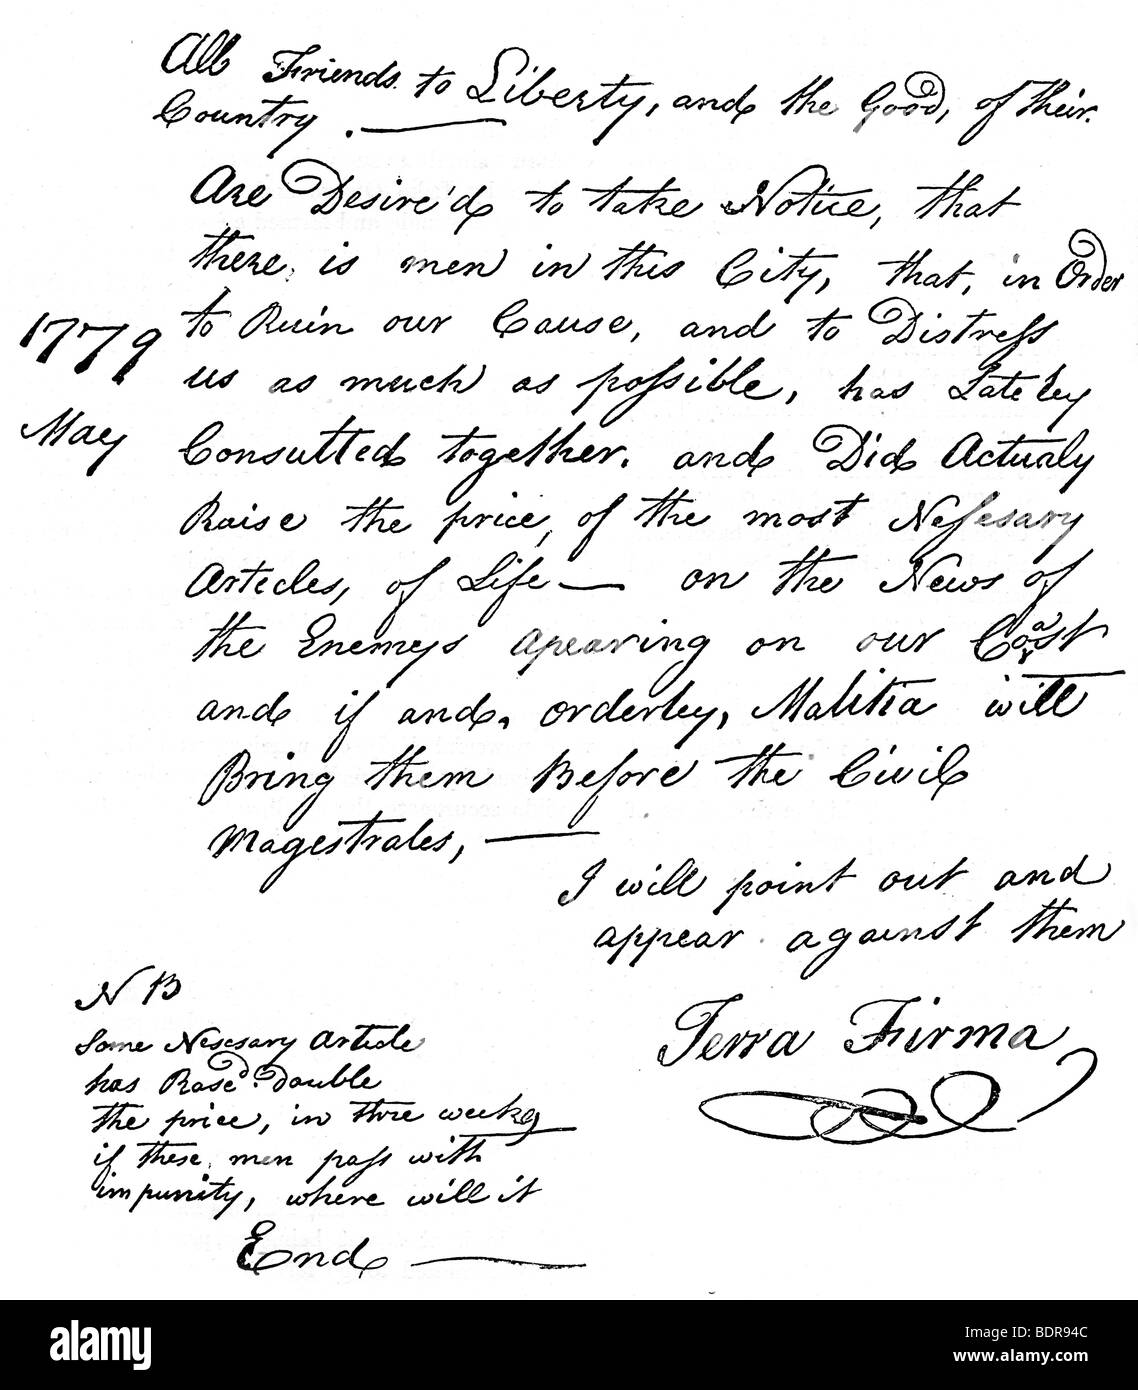 All Friends to Liberty, and the Good, of their.
Country. —
Are Desire'd to take Notice, that
there, is men in this City, that, in Order
to Ruin our Cause, and to Distreſs
us as much as poſsible, has Lateley
Consulted together. and Did Actualy
Raise the price, of the most Neſesary
Arteles, of Life — on the News of
the Enemeys apearing on our Coast
and if and, orderley, Malitia will
Bring them Before the Civil
Magestrates, —
I will point out and
appear against them
Terra Firma
1779
May
N B
Some Nescsary Article
has Rased. double
the price, in thre weeks
if these, men paſs with
impunity, where will it
End —
alamy
a
alamy
Image ID: BDR94C
www.alamy.com